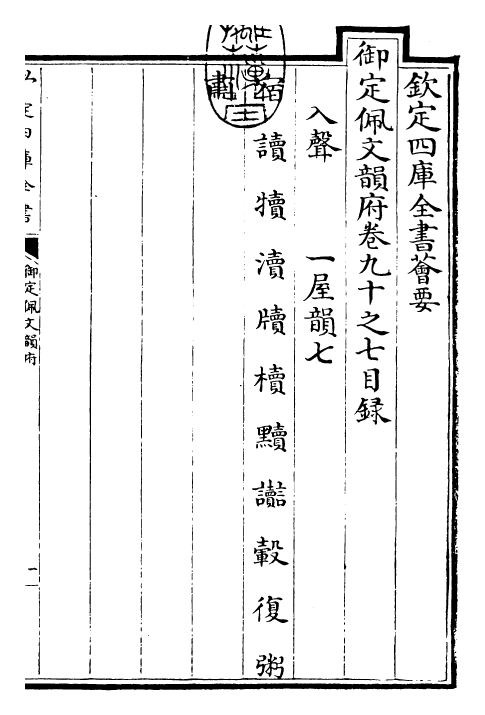 欽定四庫全書薈要
御定佩文韻府卷九十之七目錄
入聲　一屋韻七
讀　犢　瀆　牘　櫝　黷　讟　轂　復　粥
御定佩文韻府
一